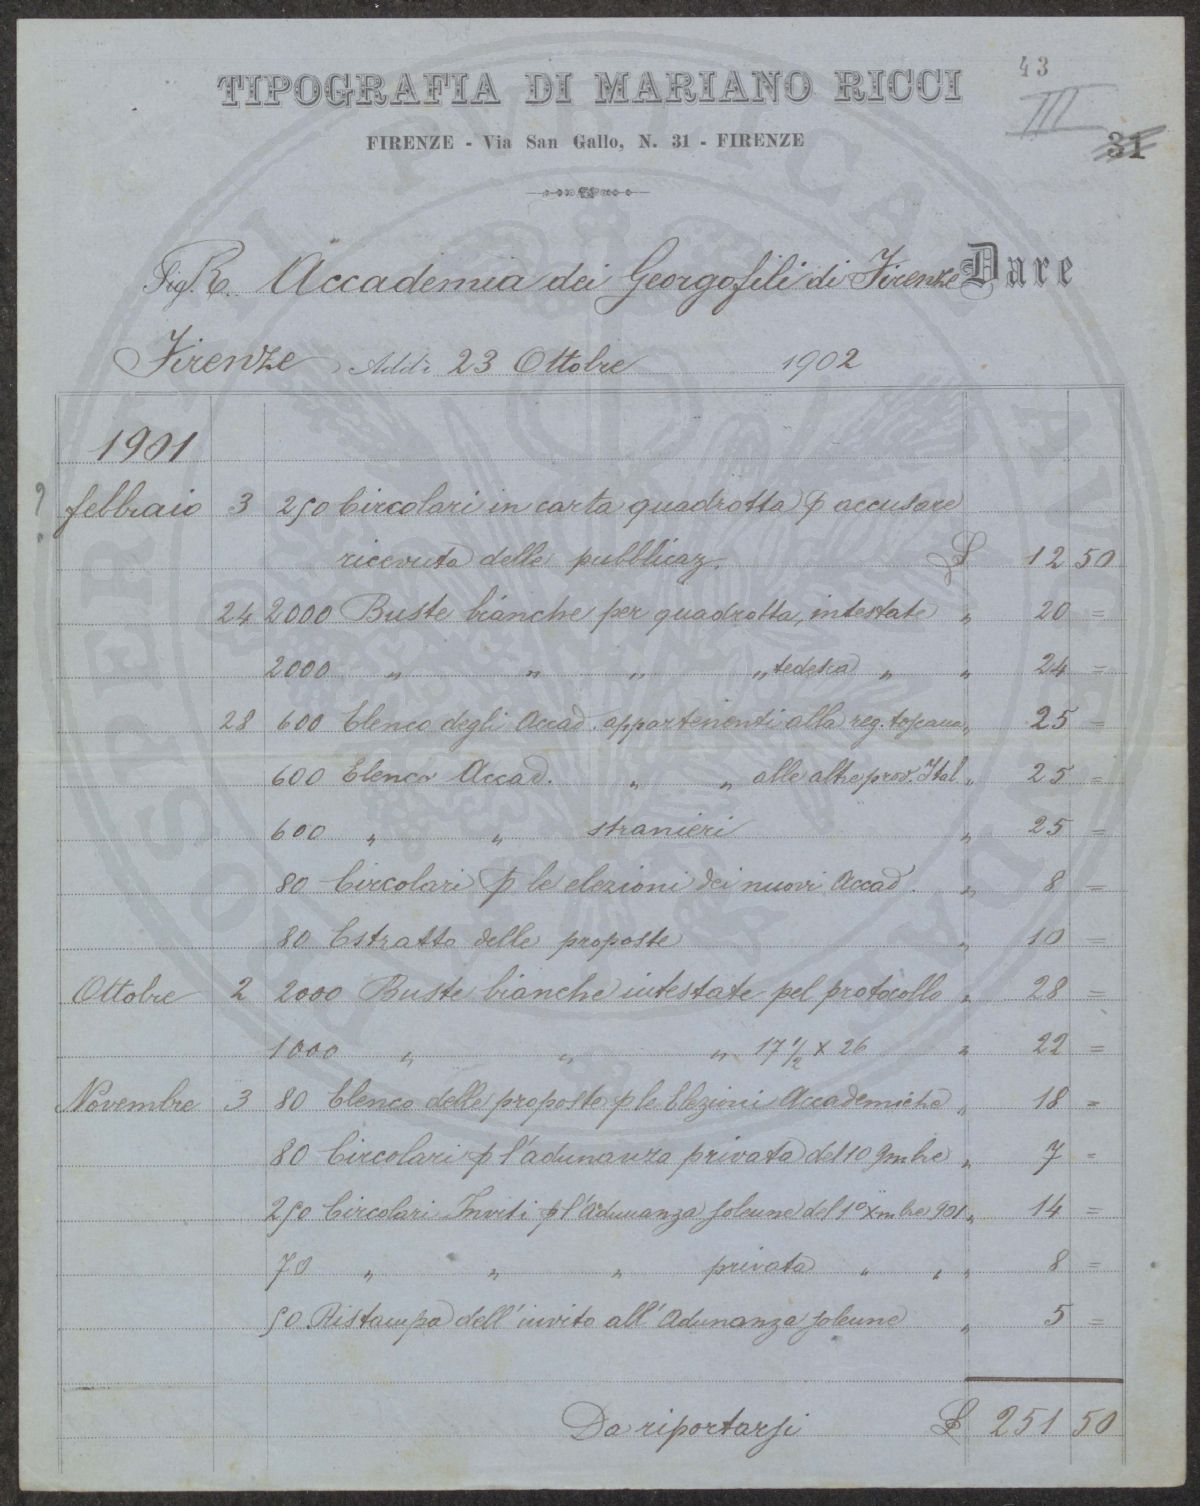 43
III
31
TIPOGRAFIA DI MARIANO RICCI
FIRENZE - Via San Gallo, N. 31 - FIRENZE
Sig. R. Accademia dei Georgofili di Firenze Dare
Firenze Addì 23 Ottobre 1902
1901
? febbraio 3 250 Circolari in carta quadrotta p accusare
ricevuta delle pubblicaz. £ 12 50
24 2000 Buste bianche per quadrotta, intestate " 20 =
2000 " " " " tedesca " " 24 =
28 600 Elenco degli Accad. appartenenti alla reg. toscana " 25 =
600 Elenco Accad. " " alle altre prov. Ital. " 25 =
600 " " stranieri " 25 =
80 Circolari p le elezioni dei nuovi Accad. " 8 =
80 Estratto delle proposte " 10 =
Ottobre 2 2000 Buste bianche intestate pel protocollo " 28 =
1000 " " " 17 1/2 x 26 " 22 =
Novembre 3 80 Elenco delle proposte p le Elezioni Accademiche " 18 =
80 Circolari p l'adunanza privata del 10 9mbre " 7 =
250 Circolari Inviti p l'Adunanza solenne del 1º Xmbre 901 " 14 =
70 " " " privata " " " 8 =
50 Ristampa dell'invito all'Adunanza solenne " 5 =
Da riportarsi £ 251 50